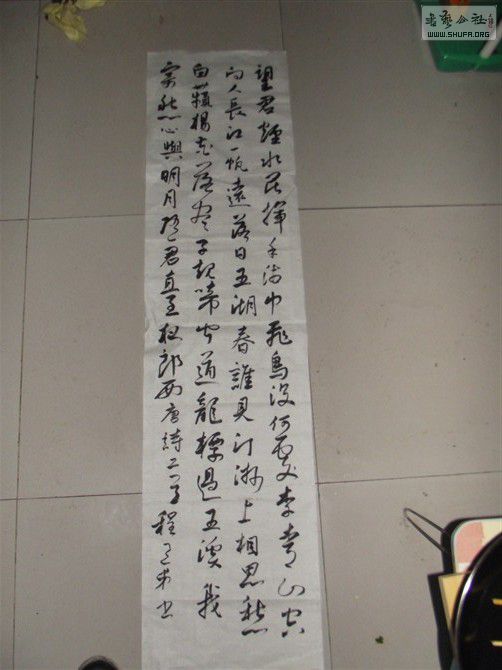 書藝公社
WWW.SHUFA.ORG
望君煙水闊揮手淚巾飛鳥没何處青山空
向人長江一帆遠落日五湖春誰見汀洲上相思愁
白蘋楊花落盡子規啼聞道龍標過五溪我
寄愁心與明月隨君直至夜郎西唐詩二首程書